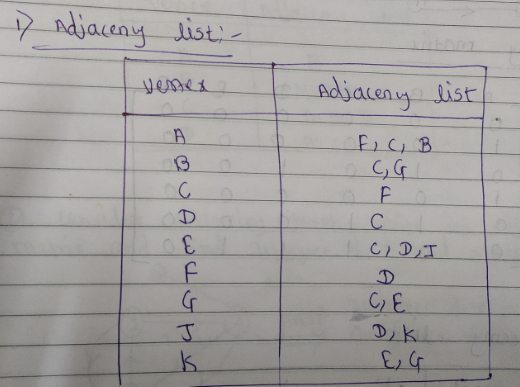 1) Adjaceny list:-
Vertex Adjaceny list
A F, C, B
B C, G
C F
D C
E C, D, J
F D
G C, E
J D, K
K E, G